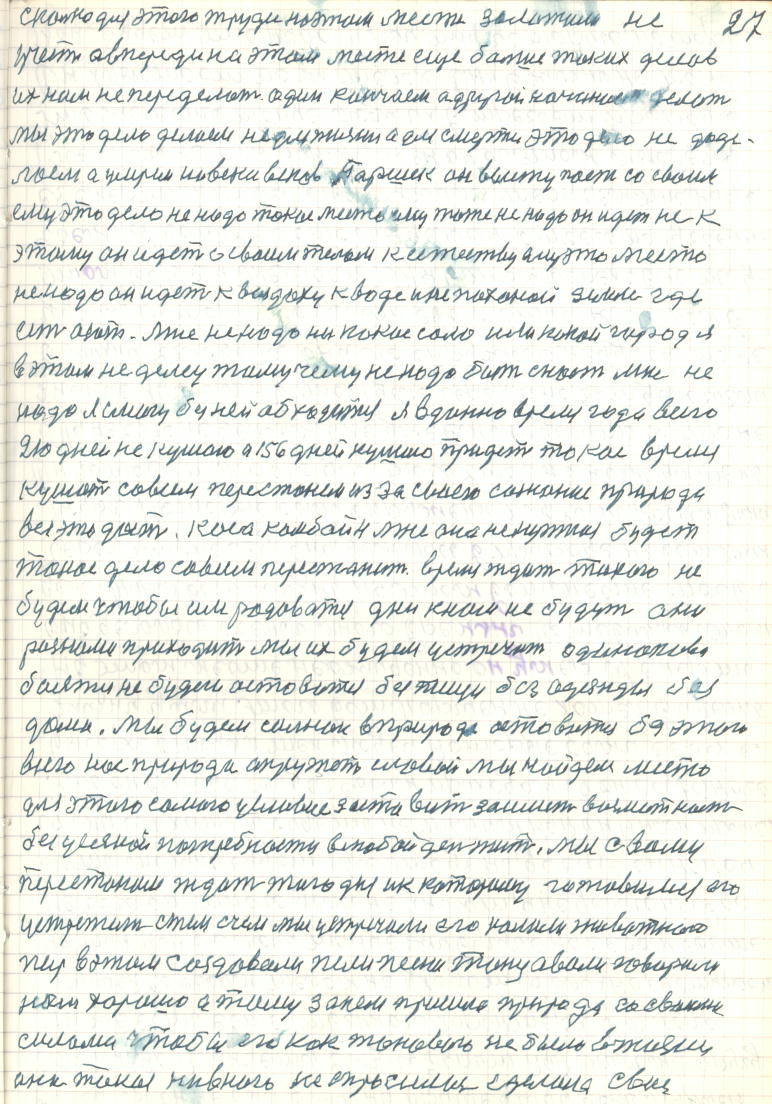 сколко для этого труда на этом месте заложили не 27
учесть а впереди на этом месте еще более таких делов
их нам не переделат. один кончаем а другой начинаем делат
мы это дело делаем не для жизни а для смерти это дело не доде-
лаем а умрем на веки веков Паршек он выступает со своим
ему это дело не надо такое место ему тоже не надо он идет не к
этому он идет с своим телом к естеству ему это место
не надо он идет к воздуху к воде и не паханой земле где
ест азот. Мне не надо ни какое село или какой город я
в этом не делец тому чему не надо быт знат мне не
надо я смогу бу ней обходится я в данно время года всего
210 дней не кушаю а 156 дней кушаю придет такое время
кушат совсем перестанем из за своего сознание природа
все это даст. Коса комбайн мне она не нужная будет
такое дело совсем перестанит. время ждат такого не
будем чтобы им радоватя дни к нам не будут они
разными приходит мы их будем устречат одинаково
болжи не будем оставатя без пищи без одежды без
дома. Мы будем солнок в природе оставатя бэ этого
всего нас природа окружат славой мы найдем место
для этого самого условие заставит занят возмотност
без усякой потребности в любой ден жит. мы с вами
перестаним ждат того дня и к которому готовилися его
устретит с тем с чем мы устречали его кололи животного
пир в этом создовали пели песни танцавали говорили
нам хорошо а тому зачем пришла природа со своими
силами чтобы его как такового не было в жизни
она такая ни в кого не спросилас сделала свое